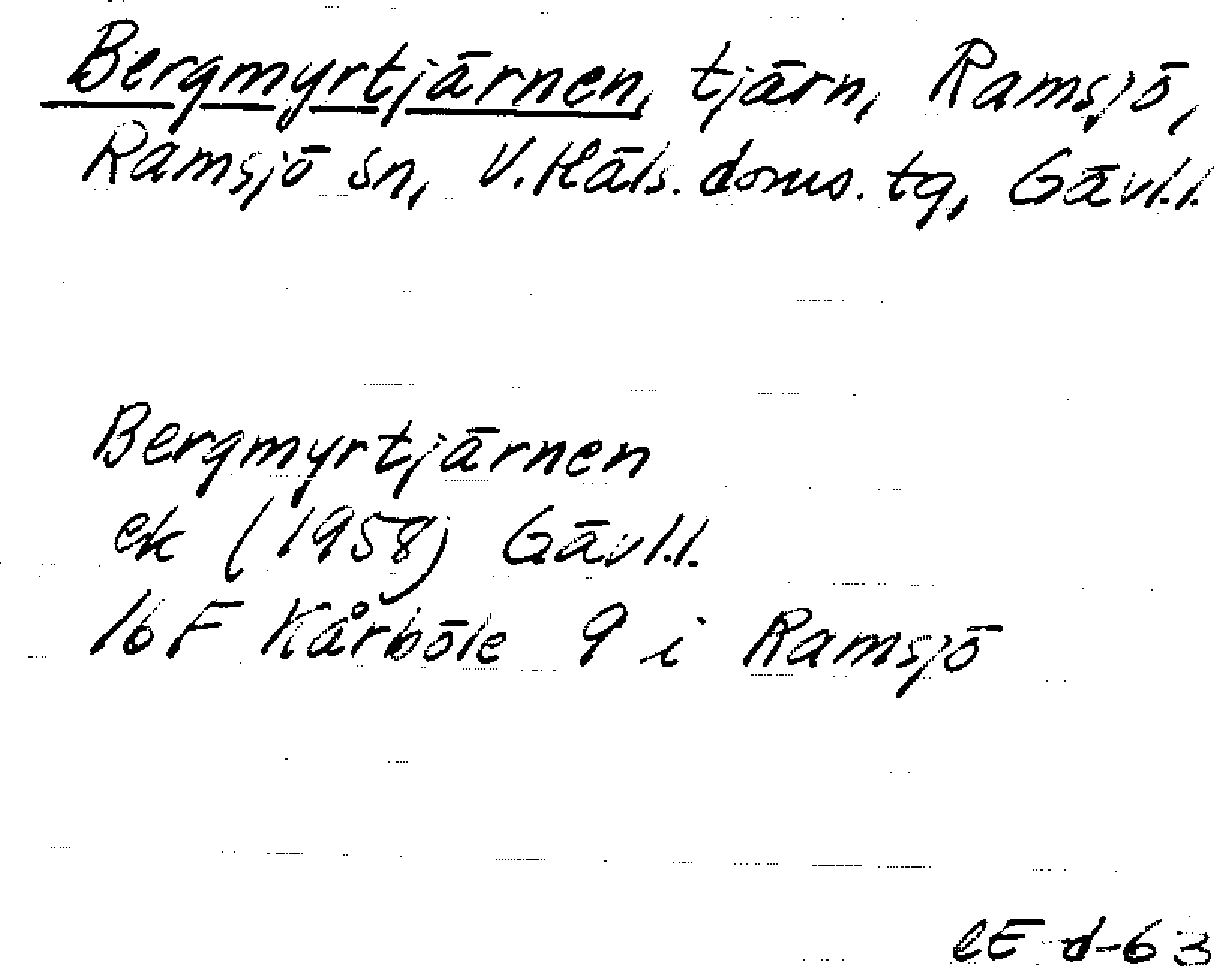 Bergmyrtjärnen, tjärn, Ramsjö,
Ramsjö sn, V. Häls. doms. tg, Gävl.l.
Bergmyrtjärnen
ek (1958) Gävl.l.
16F Kårböle 9 i Ramsjö
CE d-63